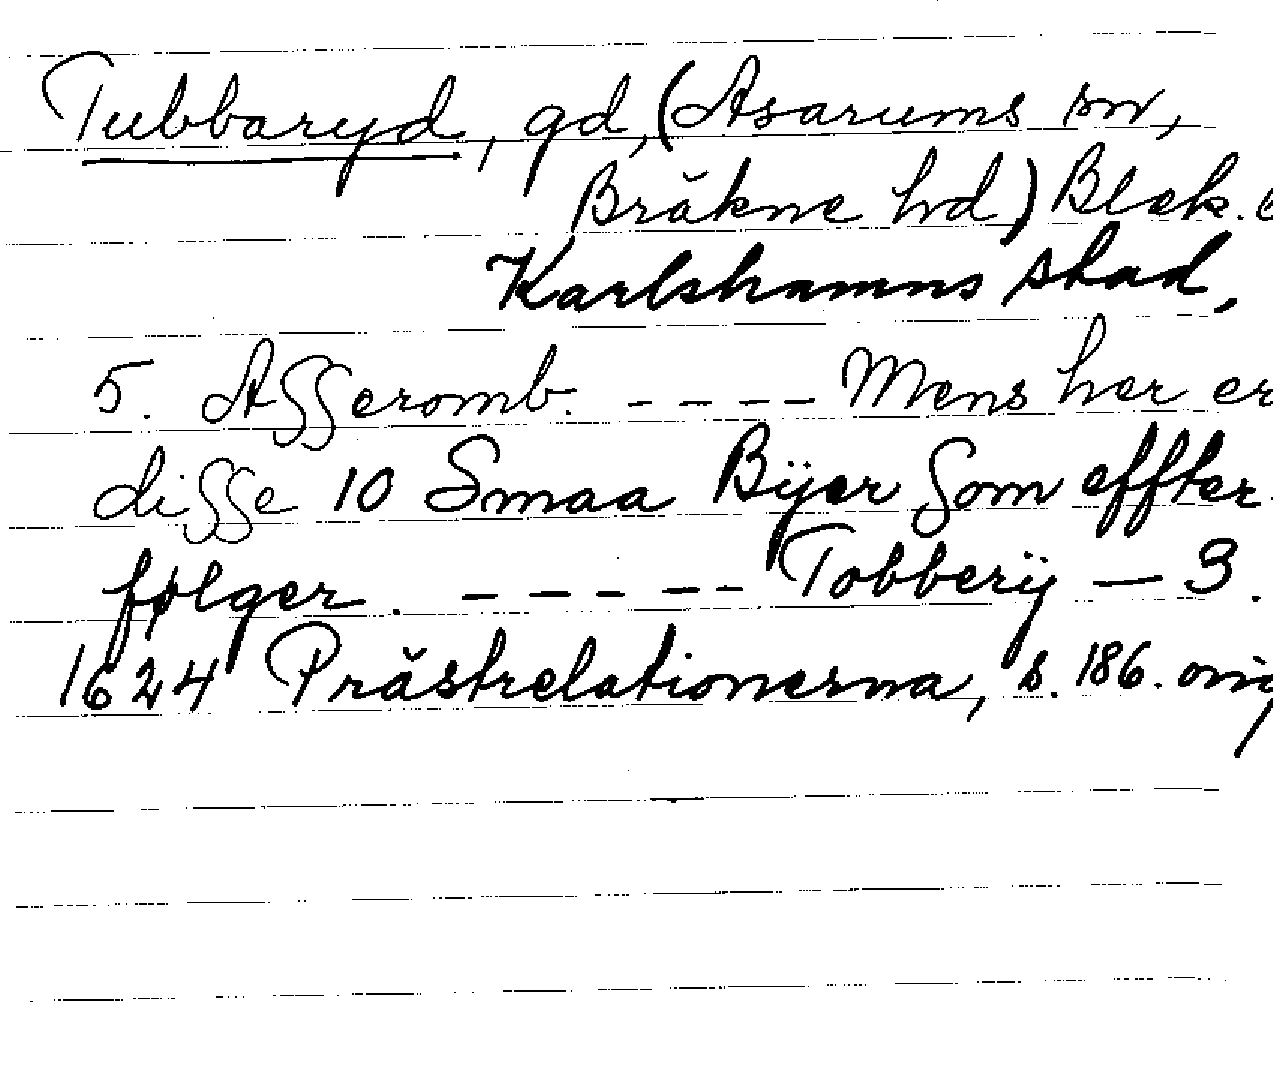 Tubbaryd, gd, (Asarums sn,
Bräkne hd) Blek.
Karlshamns stad,
5. Asseromb. ---- Mens her er
disse 10 Smaa Bÿer som effter
følger. ----- Tobberÿ — 3.
1624 Prästrelationerna, s. 186. orig